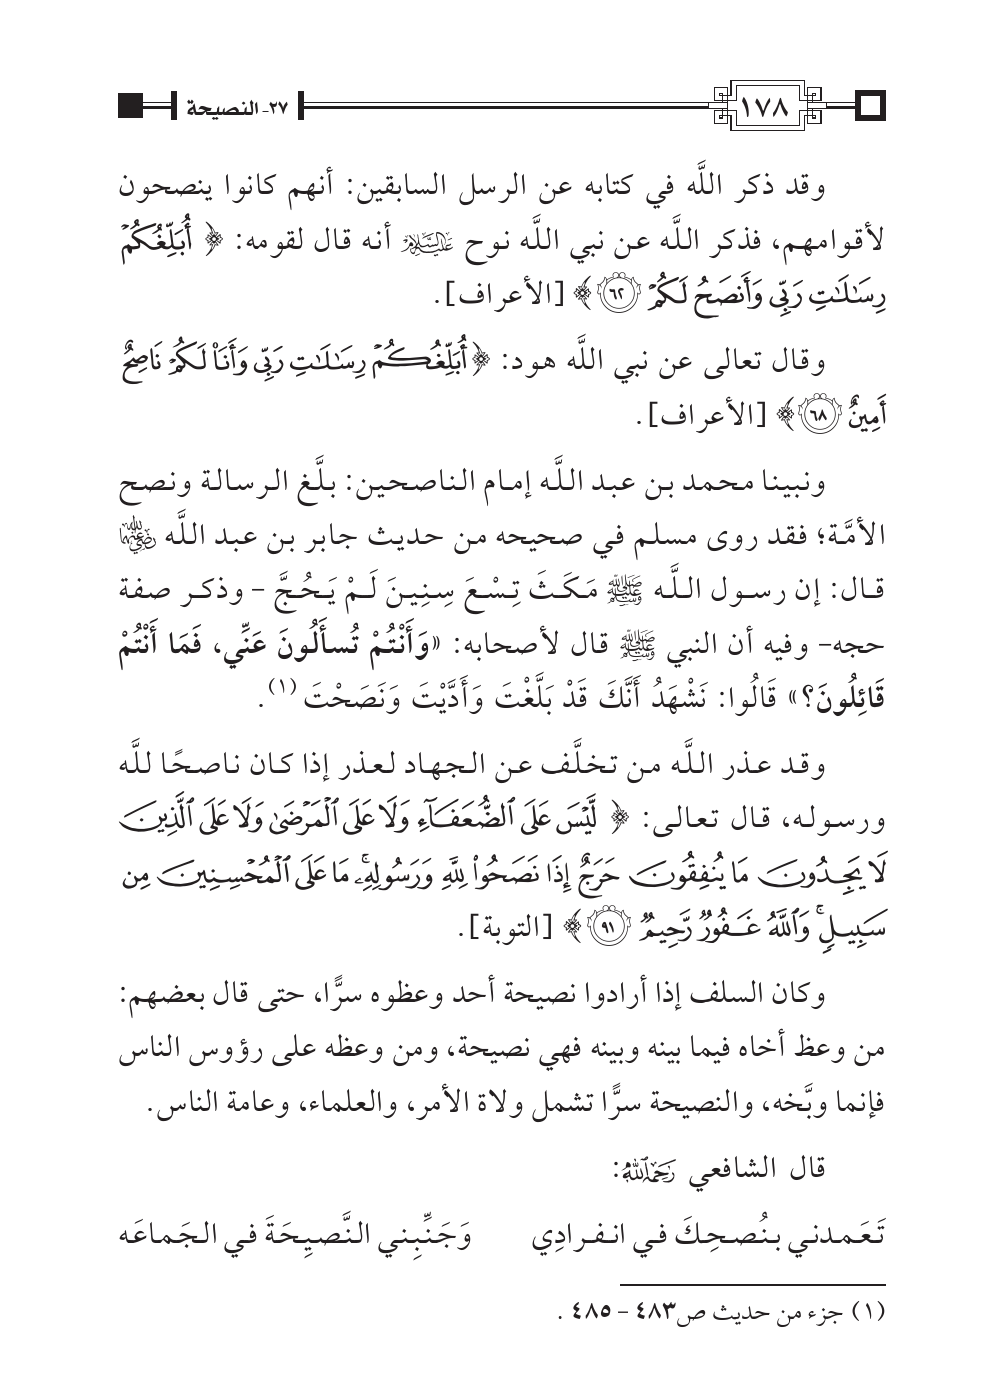 ١٧٨
٢٧- النصيحة
وقد ذكر اللَّه في كتابه عن الرسل السابقين: أنهم كانوا ينصحون
لأقوامهم، فذكر اللَّه عن نبي اللَّه نوح عليه السلام أنه قال لقومه: ﴿ أُبَلِّغُكُمۡ
رِسَٰلَٰتِ رَبِّي وَأَنصَحُ لَكُمۡ ٦٢﴾ [الأعراف].
وقال تعالى عن نبي اللَّه هود: ﴿أُبَلِّغُكُمۡ رِسَٰلَٰتِ رَبِّي وَأَنَا۠ لَكُمۡ نَاصِحٌ
أَمِينٌ ٦٨﴾ [الأعراف].
ونبينا محمد بن عبد اللَّه إمام الناصحين: بلَّغ الرسالة ونصح
الأمَّة؛ فقد روى مسلم في صحيحه من حديث جابر بن عبد اللَّه رضي الله عنهما
قال: إن رسول اللَّه ﷺ مَكَثَ تِسْعَ سِنِينَ لَمْ يَحُجَّ – وذكر صفة
حجه– وفيه أن النبي ﷺ قال لأصحابه: «وَأَنْتُمْ تُسأَلُونَ عَنِّي، فَمَا أَنْتُمْ
قَائِلُونَ؟» قَالُوا: نَشْهَدُ أَنَّكَ قَدْ بَلَّغْتَ وَأَدَّيْتَ وَنَصَحْتَ (١).
وقد عذر اللَّه من تخلَّف عن الجهاد لعذر إذا كان ناصحًا للَّه
ورسوله، قال تعالى: ﴿ لَّيۡسَ عَلَى ٱلضُّعَفَآءِ وَلَا عَلَى ٱلۡمَرۡضَىٰ وَلَا عَلَى ٱلَّذِينَ
لَا يَجِدُونَ مَا يُنفِقُونَ حَرَجٌ إِذَا نَصَحُواْ لِلَّهِ وَرَسُولِهِۦۚ مَا عَلَى ٱلۡمُحۡسِنِينَ مِن
سَبِيلٖۚ وَٱللَّهُ غَفُورٞ رَّحِيمٞ ٩١﴾ [التوبة].
وكان السلف إذا أرادوا نصيحة أحد وعظوه سرًّا، حتى قال بعضهم:
من وعظ أخاه فيما بينه وبينه فهي نصيحة، ومن وعظه على رؤوس الناس
فإنما وبَّخه، والنصيحة سرًّا تشمل ولاة الأمر، والعلماء، وعامة الناس.
قال الشافعي رحمه الله:
تَعَمدني بنُصحِكَ في انفرادِي وَجَنِّبِني النَّصيِحَةَ في الجَماعَه
(١) جزء من حديث ص٤٨٣ – ٤٨٥ .